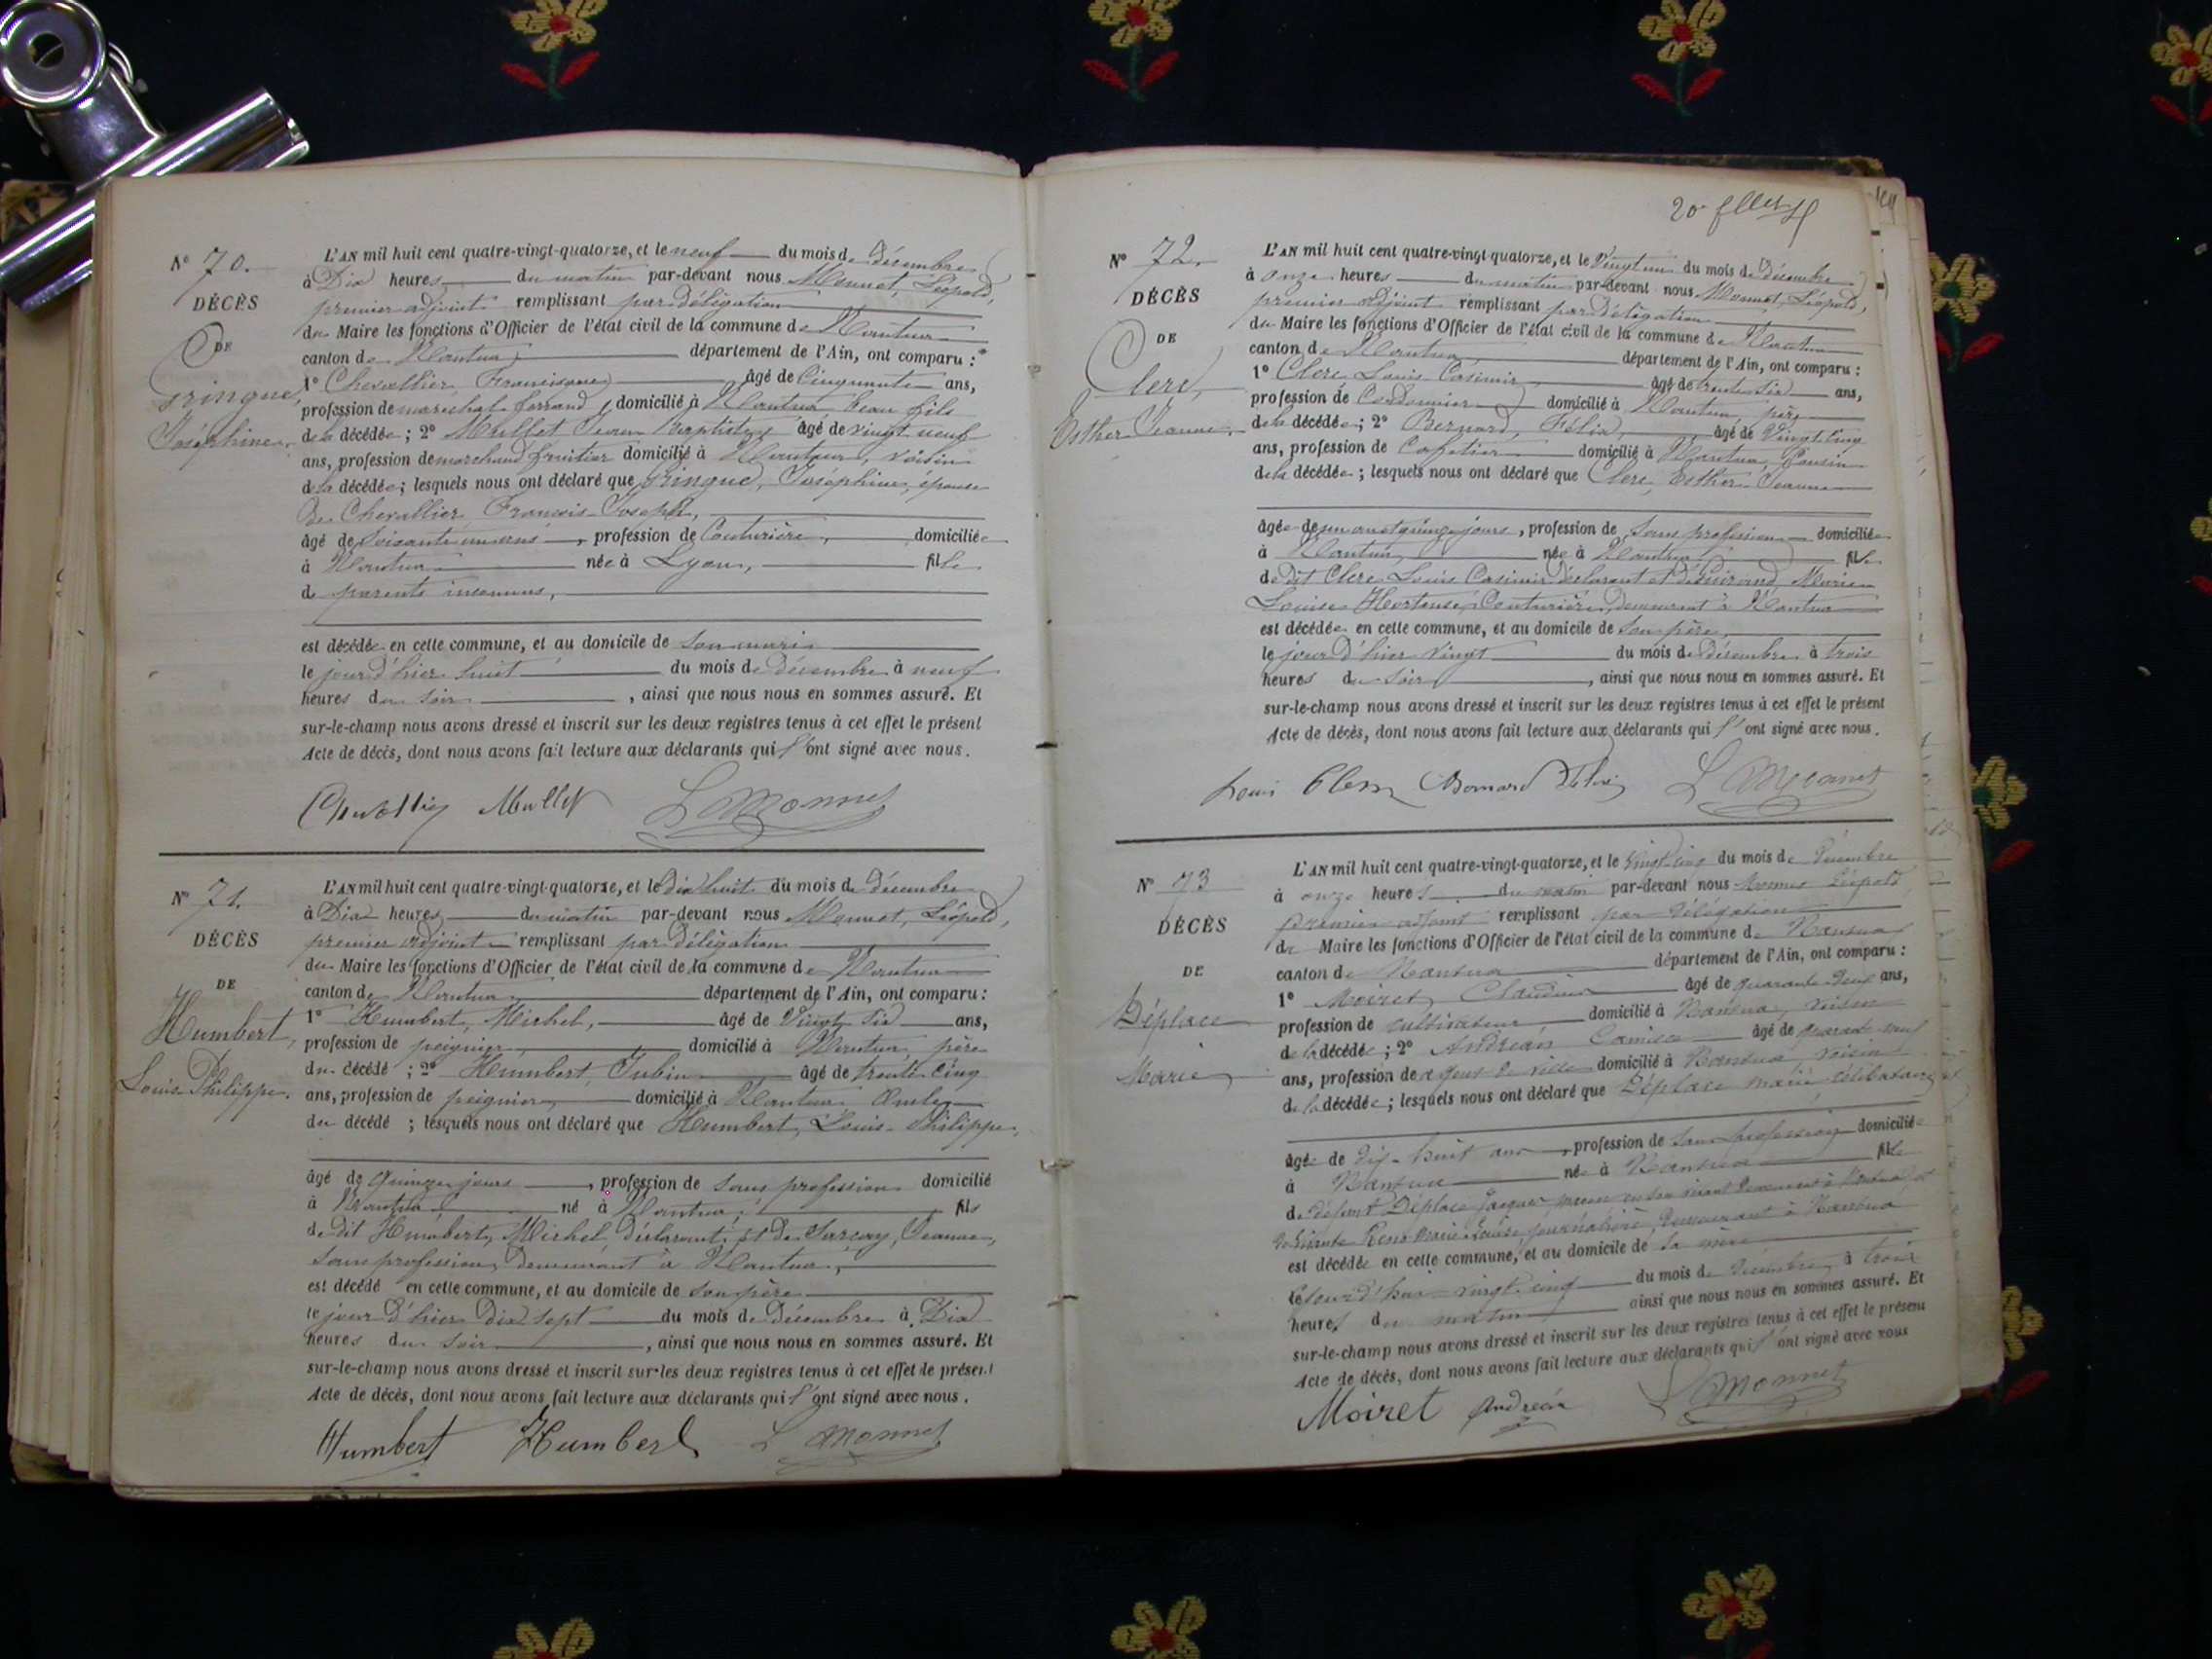 N° 70.
DÉCÈS
DE
Gringue,
Joséphine.
L'AN mil huit cent quatre-vingt-quatorze, et le neuf du mois de Décembre
à Dix heures du matin par-devant nous Monnet, Léopold,
premier adjoint remplissant par Délégation
du Maire les fonctions d'Officier de l'état civil de la commune de Nantua
canton de Nantua département de l'Ain, ont comparu :
1° Chevallier âgé de Cinquante ans,
profession de maréchal ferrand, domicilié à Nantua beau fils
de la décédée ; 2° Mullet Jean Baptiste, âgé de vingt neuf
ans, profession de marchand fruitier domicilié à Nantua, voisin
de la décédée ; lesquels nous ont déclaré que Gringue, Joséphine, épouse
de Chevallier François Joseph,
âgé de soixante un ans, profession de Couturière, domiciliée
à Nantua née à Lyon, fille
de parents inconnus,
est décédée en cette commune, et au domicile de son mari
le jour d'hier huit du mois de Décembre à neuf
heures du soir, ainsi que nous nous en sommes assuré. Et
sur-le-champ nous avons dressé et inscrit sur les deux registres tenus à cet effet le présent
Acte de décès, dont nous avons fait lecture aux déclarants qui l'ont signé avec nous.
Mullet L Monnet
N° 71.
DÉCÈS
DE
Humbert,
Louis Philippe.
L'AN mil huit cent quatre-vingt-quatorze, et le Dix huit du mois de Décembre
à Dix heures du matin par-devant nous Monnet, Léopold,
premier adjoint remplissant par Délégation
du Maire les fonctions d'Officier de l'état civil de la commune de Nantua
canton de Nantua département de l'Ain, ont comparu :
1° Humbert, Michel, âgé de Vingt six ans,
profession de peignier domicilié à Nantua, père
du décédé ; 2° Humbert, Jubin âgé de trente cinq
ans, profession de peignier domicilié à Nantua Oncle
du décédé ; lesquels nous ont déclaré que Humbert, Louis Philippe,
âgé de quinze jours, profession de sans profession domicilié
à Nantua né à Nantua, fils
de dit Humbert, Michel, Déclarant, et de Sarcey, Jeanne,
sans profession, demeurant à Nantua,
est décédé en cette commune, et au domicile de son père
le jour d'hier Dix sept du mois de Décembre à Dix
heures du soir, ainsi que nous nous en sommes assuré. Et
sur-le-champ nous avons dressé et inscrit sur les deux registres tenus à cet effet le présent
Acte de décès, dont nous avons fait lecture aux déclarants qui l'ont signé avec nous.
Humbert Humbert L Monnet
N° 72.
DÉCÈS
DE
Clerc,
Esther Jeanne.
L'AN mil huit cent quatre-vingt-quatorze, et le Vingt un du mois de Décembre
à onze heures du matin par-devant nous Monnet, Léopold,
premier adjoint remplissant par Délégation
du Maire les fonctions d'Officier de l'état civil de la commune de Nantua
canton de Nantua département de l'Ain, ont comparu :
1° Clerc Louis Casimir âgé de trente six ans,
profession de Cordonnier domicilié à Nantua, père
de la décédée ; 2° Bernard, Félix, âgé de Vingt cinq
ans, profession de Cafetier domicilié à Nantua, Cousin
de la décédée ; lesquels nous ont déclaré que Clerc, Esther Jeanne
âgée de un an et quinze jours, profession de sans profession domiciliée
à Nantua, née à Nantua, fille
de dit Clerc Louis Casimir déclarant et de Marie
Louise Hortense, Couturière, demeurant à Nantua
est décédée en cette commune, et au domicile de son père,
le jour d'hier vingt du mois de Décembre à trois
heures du soir, ainsi que nous nous en sommes assuré. Et
sur-le-champ nous avons dressé et inscrit sur les deux registres tenus à cet effet le présent
Acte de décès, dont nous avons fait lecture aux déclarants qui l'ont signé avec nous.
Louis Clerc Bernard Félix L Monnet
N° 73
DÉCÈS
DE
Déplace
Marie
L'AN mil huit cent quatre-vingt-quatorze, et le vingt cinq du mois de Décembre
à onze heures du matin par-devant nous Monnet Léopold
premier adjoint remplissant par délégation
du Maire les fonctions d'Officier de l'état civil de la commune de Nantua
canton de Nantua département de l'Ain, ont comparu :
1° Moiret Claudius âgé de quarante deux ans,
profession de cultivateur domicilié à Nantua, voisin
de la décédée ; 2° Andréan Camille âgé de quarante neuf
ans, profession de agent de ville domicilié à Nantua voisin
de la décédée ; lesquels nous ont déclaré que Déplace marie célibataire
âgée de dix-huit ans, profession de sans profession domiciliée
à Nantua née à Nantua fille
de défunt Déplace Jacques en son vivant demeurant à Nantua et
de vivante Marie Louise journalière, demeurant à Nantua
est décédée en cette commune, et au domicile de sa mère
le jour d'hui vingt cinq du mois de Décembre à trois
heures du matin ainsi que nous nous en sommes assuré. Et
sur-le-champ nous avons dressé et inscrit sur les deux registres tenus à cet effet le présent
Acte de décès, dont nous avons fait lecture aux déclarants qui l'ont signé avec nous
Moiret Andréan L Monnet